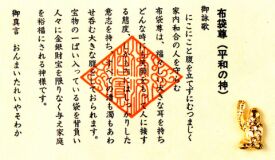 布袋尊（平和の神）
御詠歌
にこにこと腹を立てずにむつまじく
家内和合の人を守
布袋尊は、福 大な耳を持ち
どんな時 人に接す
る態度、 っかりした
意志を持ち の も濁もあわ
せ呑む大きな腹 ておられます。
宝物の一ぱい入っている袋を背負い
人々に金銀財宝を限りなく与え家庭
を裕福にされる神様です。
御真言 おんまいたれいやそわか